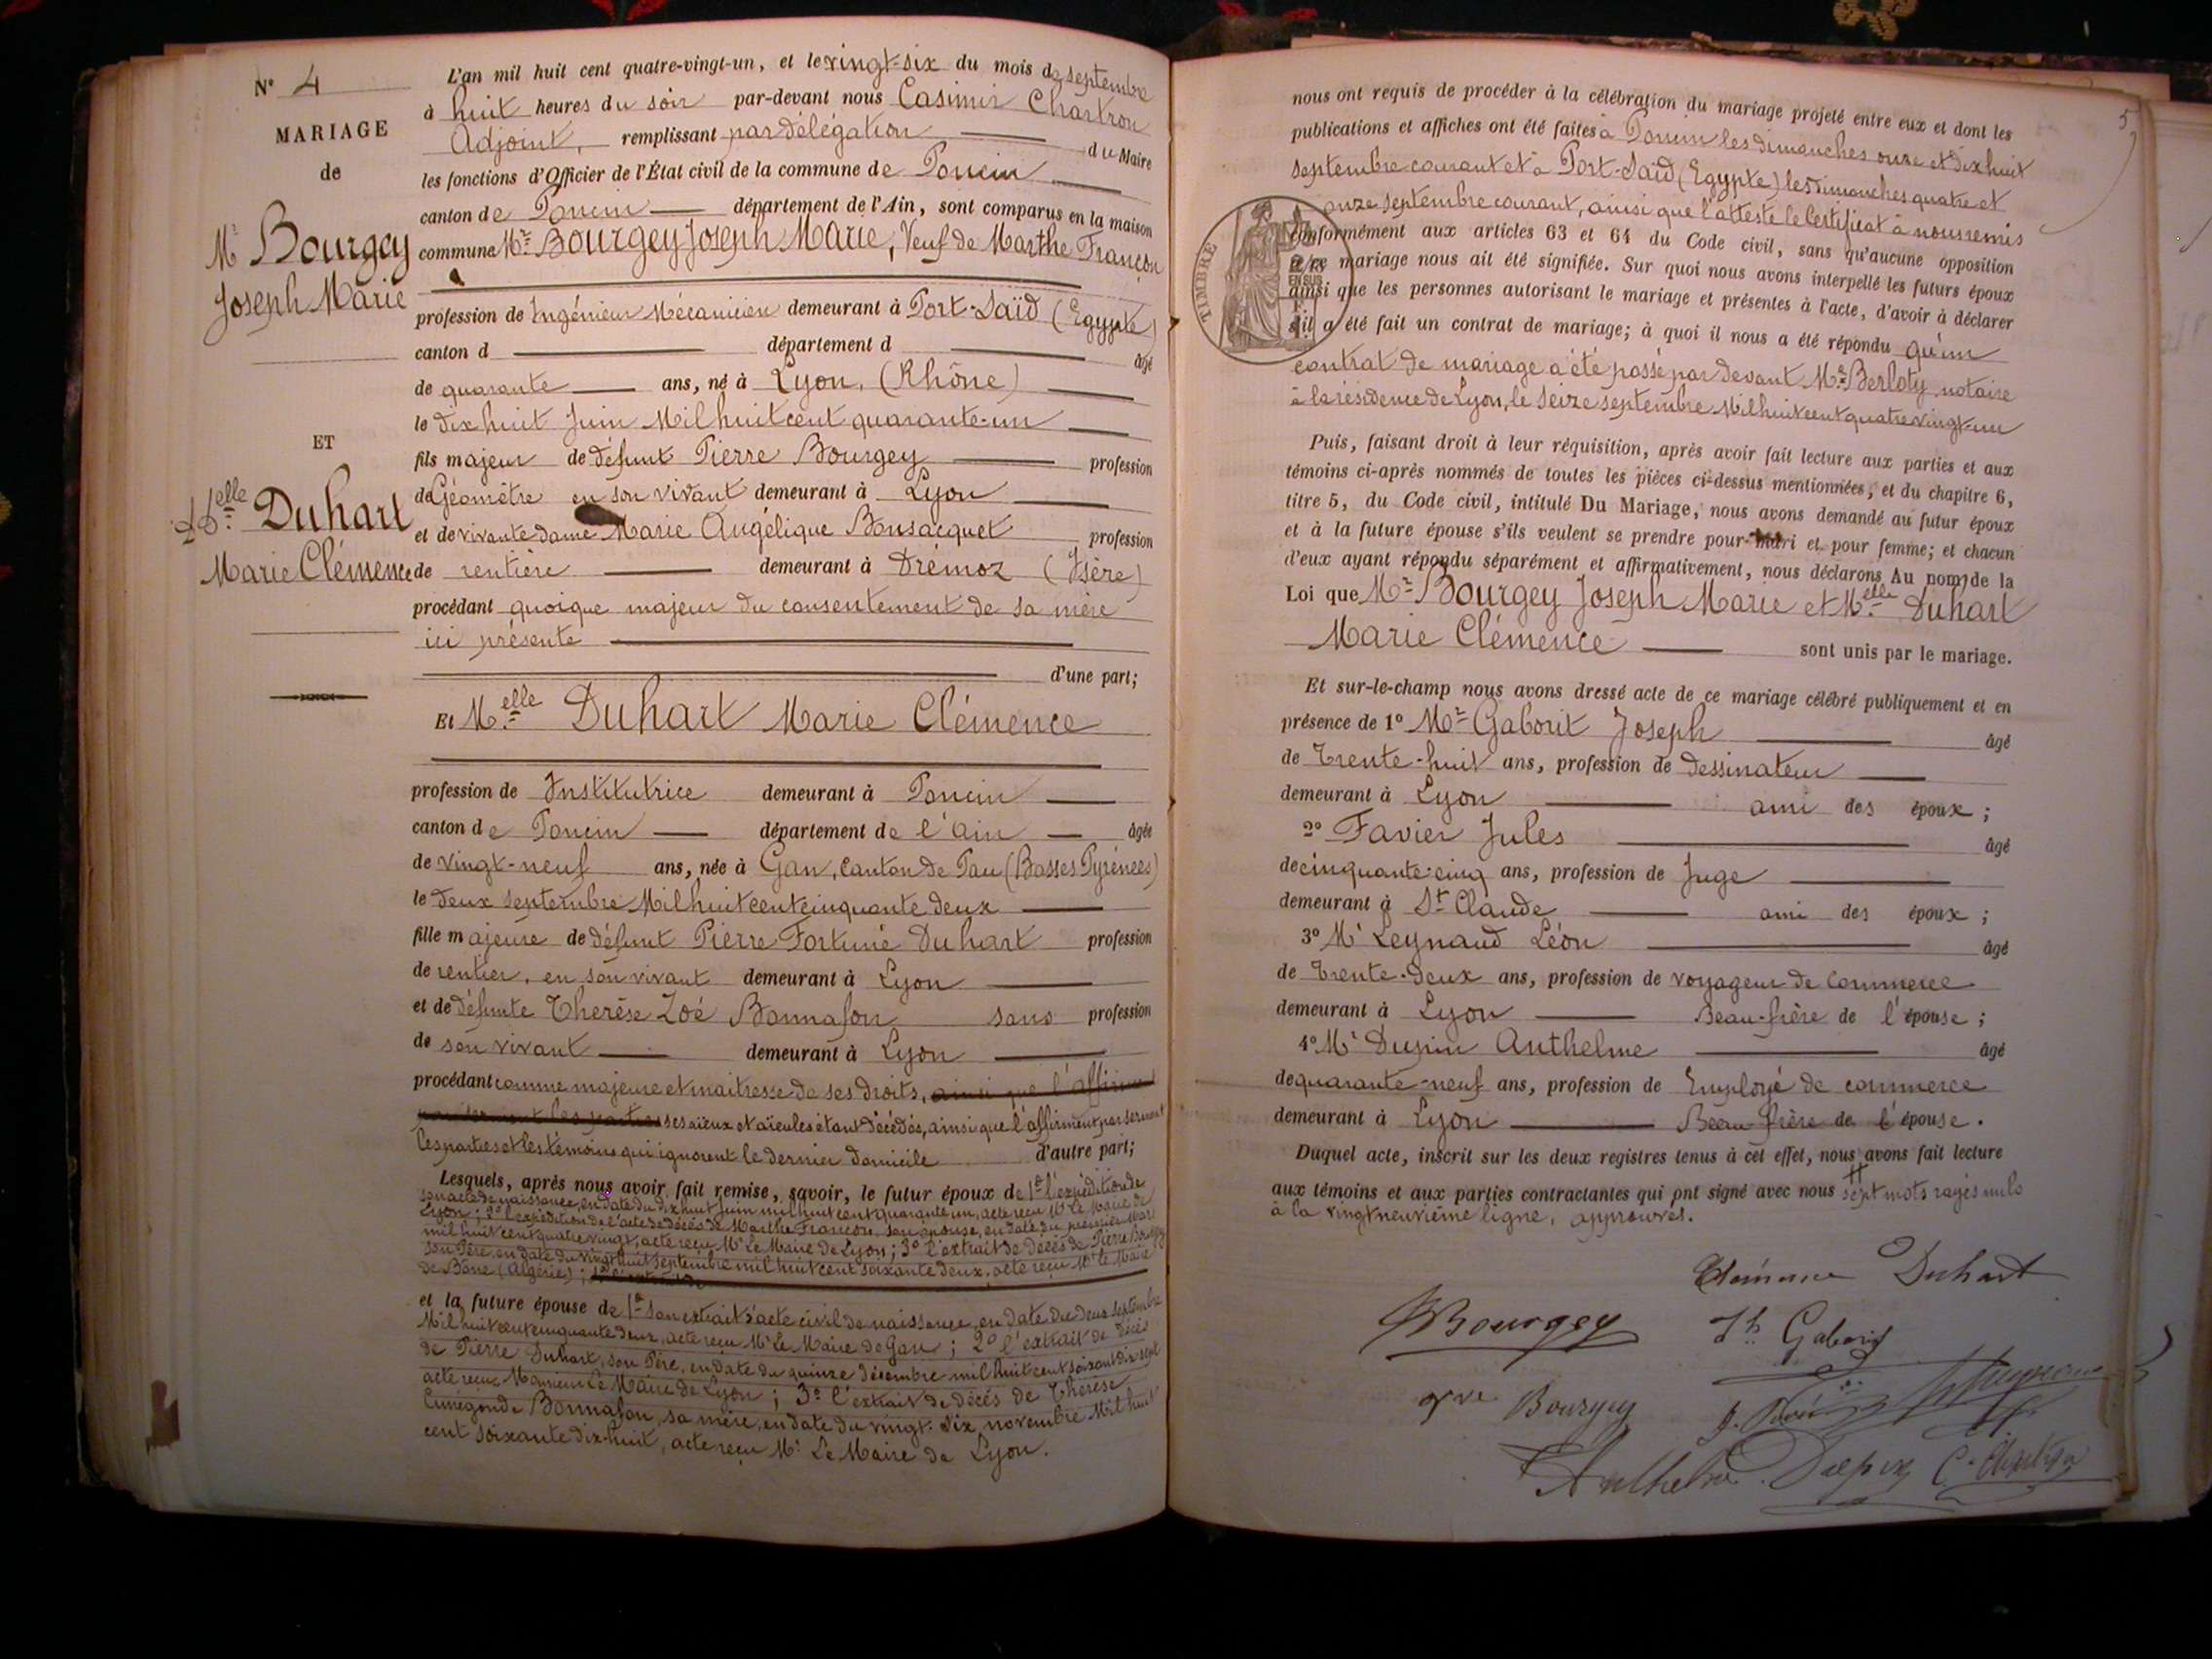 N° 4
MARIAGE
de
Mr Bourgey
Joseph Marie
ET
Melle Duhart
Marie Clémence
L'an mil huit cent quatre-vingt-un, et le vingt-six du mois de septembre
à huit heures du soir par-devant nous Casimir Chartron
Adjoint, remplissant par délégation du Maire
les fonctions d'Officier de l'État civil de la commune de Poncin
canton de Poncin département de l'Ain, sont comparus en la maison
commune Mr Bourgey Joseph Marie, Veuf de Marthe Françon
profession de Ingénieur Mécanicien demeurant à Port-Saïd (Egypte)
canton d département d âgé
de quarante ans, né à Lyon, (Rhône)
le dix huit Juin Mil huit cent quarante-un
fils majeur de défunt Pierre Bourgey profession
de Géomêtre en son vivant demeurant à Lyon
et de vivante dame Marie Augélique Bonsacquet profession
de rentière demeurant à Drémoz (Isère)
procédant quoique majeur du consentement de sa mère
ici présente
d'une part;
Et Melle Duhart Marie Clémence
profession de Institutrice demeurant à Poncin
canton de Poncin département de l'Ain âgée
de vingt-neuf ans, née à Gan, Canton de Pau (Basses Pyrénées)
le deux septembre Mil huit cent cinquante deux
fille majeure de défunt Pierre Fortuné Duhart profession
de rentier, en son vivant demeurant à Lyon
et de défunte Therèse Zoé Bonnafon sans profession
de son vivant demeurant à Lyon
procédant comme majeure et maitresse de ses droits, ainsi que l'affirment
les parties ses aïeux et aïeules étant décédés, ainsi que l'affirment par serment
les parties et les témoins qui ignorent le dernier domicile d'autre part;
Lesquels, après nous avoir fait remise, savoir, le futur époux de 1° l'expédition de
son acte de naissance, en date du dix huit Juin mil huit cent quarante un, acte reçu Mr Le Maire de
Lyon; 2° l'expédition de l'acte de décès de Marthe Françon, son épouse, en date du premier Mars
mil huit cent quatre vingt, acte reçu Mr Le Maire de Lyon; 3° l'extrait de décès de Pierre Bourgey
son Père, en date du vingt huit septembre mil huit cent soixante deux, acte reçu Mr le Maire
de Bône (Algérie);
et la future épouse de 1° son extrait d'acte civil de naissance, en date du deux septembre
Mil huit cent cinquante deux, acte reçu Mr Le Maire de Gan; 2° l'extrait de décès
de Pierre Duhart, son Père, en date du quinze décembre mil huit cent soixante dix-sept
acte reçu Monsieur Le Maire de Lyon; 3° l'extrait de décès de Therèse
Cunégonde Bonnafon, sa mère, en date du vingt-six novembre Mil huit
cent soixante dix-huit, acte reçu Mr Le Maire de Lyon.
5
nous ont requis de procéder à la célébration du mariage projeté entre eux et dont les
publications et affiches ont été faites à Poncin les dimanches onze et dix huit
septembre courant et à Port-Saïd (Egypte) les dimanches quatre et
onze septembre courant, ainsi que l'atteste le Certificat à nous remis
TIMBRE
conformément aux articles 63 et 64 du Code civil, sans qu'aucune opposition
à ce mariage nous ait été signifiée. Sur quoi nous avons interpellé les futurs époux
EN SUS
ainsi que les personnes autorisant le mariage et présentes à l'acte, d'avoir à déclarer
s'il a été fait un contrat de mariage; à quoi il nous a été répondu qu'un
contrat de mariage a été passé par devant Me Berloty notaire
à la résidence de Lyon, le seize septembre Mil huit cent quatre vingt-un
Puis, faisant droit à leur réquisition, après avoir fait lecture aux parties et aux
témoins ci-après nommés de toutes les pièces ci-dessus mentionnées, et du chapitre 6,
titre 5, du Code civil, intitulé Du Mariage, nous avons demandé au futur époux
et à la future épouse s'ils veulent se prendre pour mari et pour femme; et chacun
d'eux ayant répondu séparément et affirmativement, nous déclarons Au nom de la
Loi que Mr Bourgey Joseph Marie et Melle Duhart
Marie Clémence sont unis par le mariage.
Et sur-le-champ nous avons dressé acte de ce mariage célébré publiquement et en
présence de 1° Mr Gaborit Joseph âgé
de Trente-huit ans, profession de dessinateur
demeurant à Lyon ami des époux;
2° Favier Jules âgé
de cinquante-cinq ans, profession de Juge
demeurant à St Claude ami des époux;
3° Mr Leynaud Léon âgé
de Trente-deux ans, profession de voyageur de commerce
demeurant à Lyon Beau-frère de l'épouse;
4° Mr Dupin Anthelme âgé
de quarante-neuf ans, profession de Employé de commerce
demeurant à Lyon Beau frère de l'épouse.
Duquel acte, inscrit sur les deux registres tenus à cet effet, nous avons fait lecture
aux témoins et aux parties contractantes qui ont signé avec nous sept mots rayés nuls
à la vingt neuvième ligne, approuvés.
Clémence Duhart
Bourgey
Jh Gaborit
Vve Bourgey
J. Favier
Leynaud
Anthelme Dupin
C. Chartron